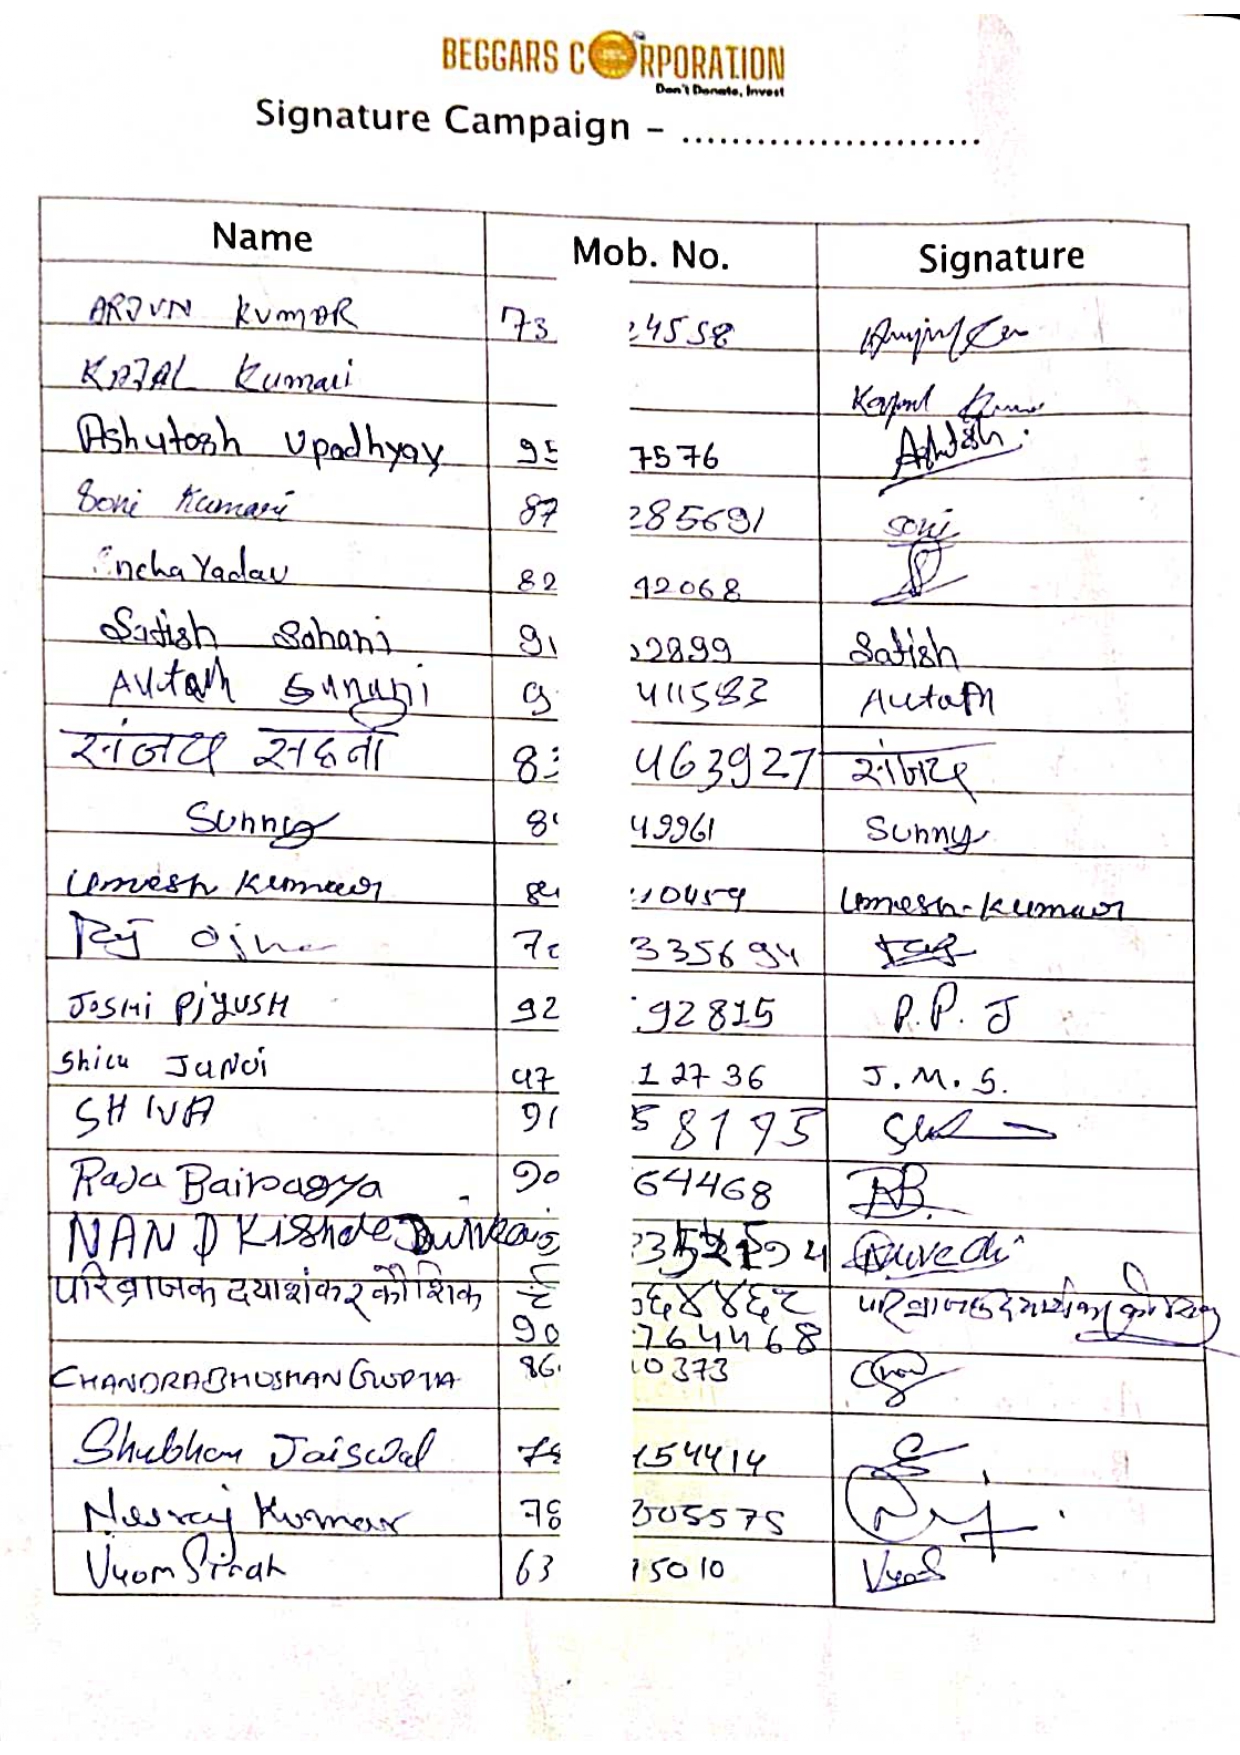 BEGGARS CORPORATION
Don't Donate, Invest
Signature Campaign - ........................
Name Mob. No. Signature
ARJUN KUMAR 73 24558
KAJAL Kumari
Ashutosh Upadhyay 95 7576 Ashutosh
Soni Kumari 87 285691 Soni
ncha Yadav 82 92068
Satish Sahani 91 2899 Satish
9 411583
संजय सहनी 83 463927 संजय
Sunny 8 49961 Sunny
Umesh Kumar 84 10459 Umesh-Kumar
Raj Ojha 70 335694 Raj
JOSHI PIYUSH 92 92815 P.P. J
47 12736 J.M.S.
SHIVA 91 58195
Raja Bairagya 90 64468 RB.
NAND Kishore
परिव्राजक दयाशंकर कौशिक ६४४६८
90 764468
CHANDRABHUSHAN GUPTA 86 10373
Shubham Jaiswal 78 154414
Neeraj Kumar 78 005575
Vyom Singh 63 15010 Vyom